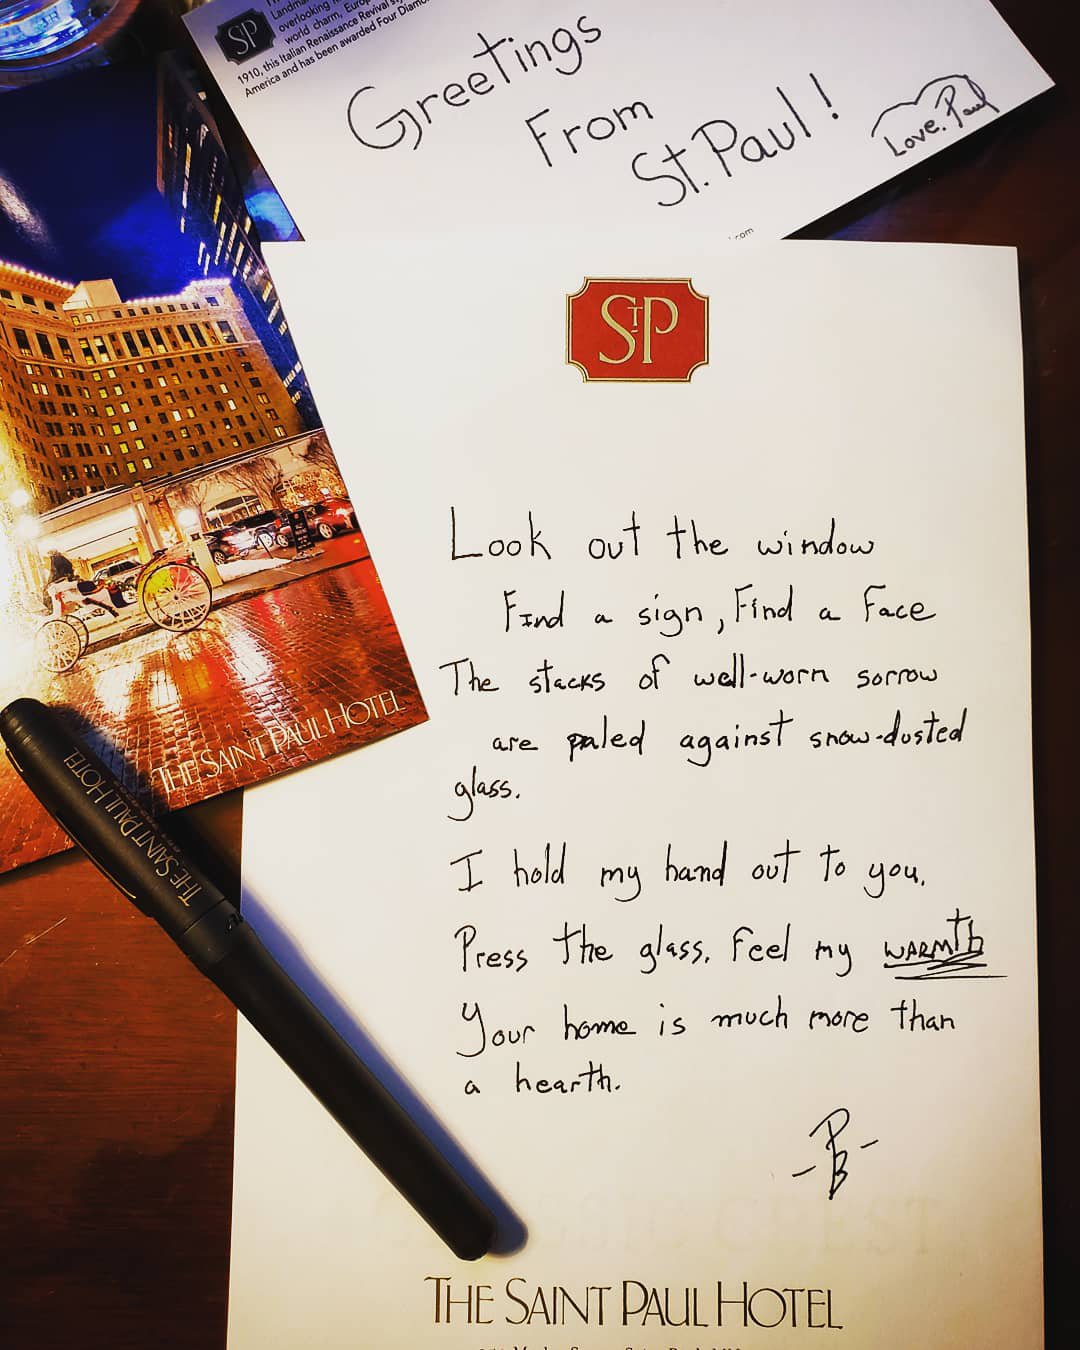 Landma
overlooking
world charm, Euro
1910, this Italian Renaissance Revival s
America and has been awarded Four Diamo
STP
Greetings
From
St. Paul!
Love, Paul
.com
STP
Look out the window
Find a sign, Find a Face
The stacks of well-worn sorrow
are paled against snow-dusted
glass.
I hold my hand out to you.
Press the glass. Feel my WARMth
Your home is much more than
a hearth.
-PB-
THE SAINT PAUL HOTEL
THE SAINT PAUL HOTEL
THE SAINT PAUL HOTEL